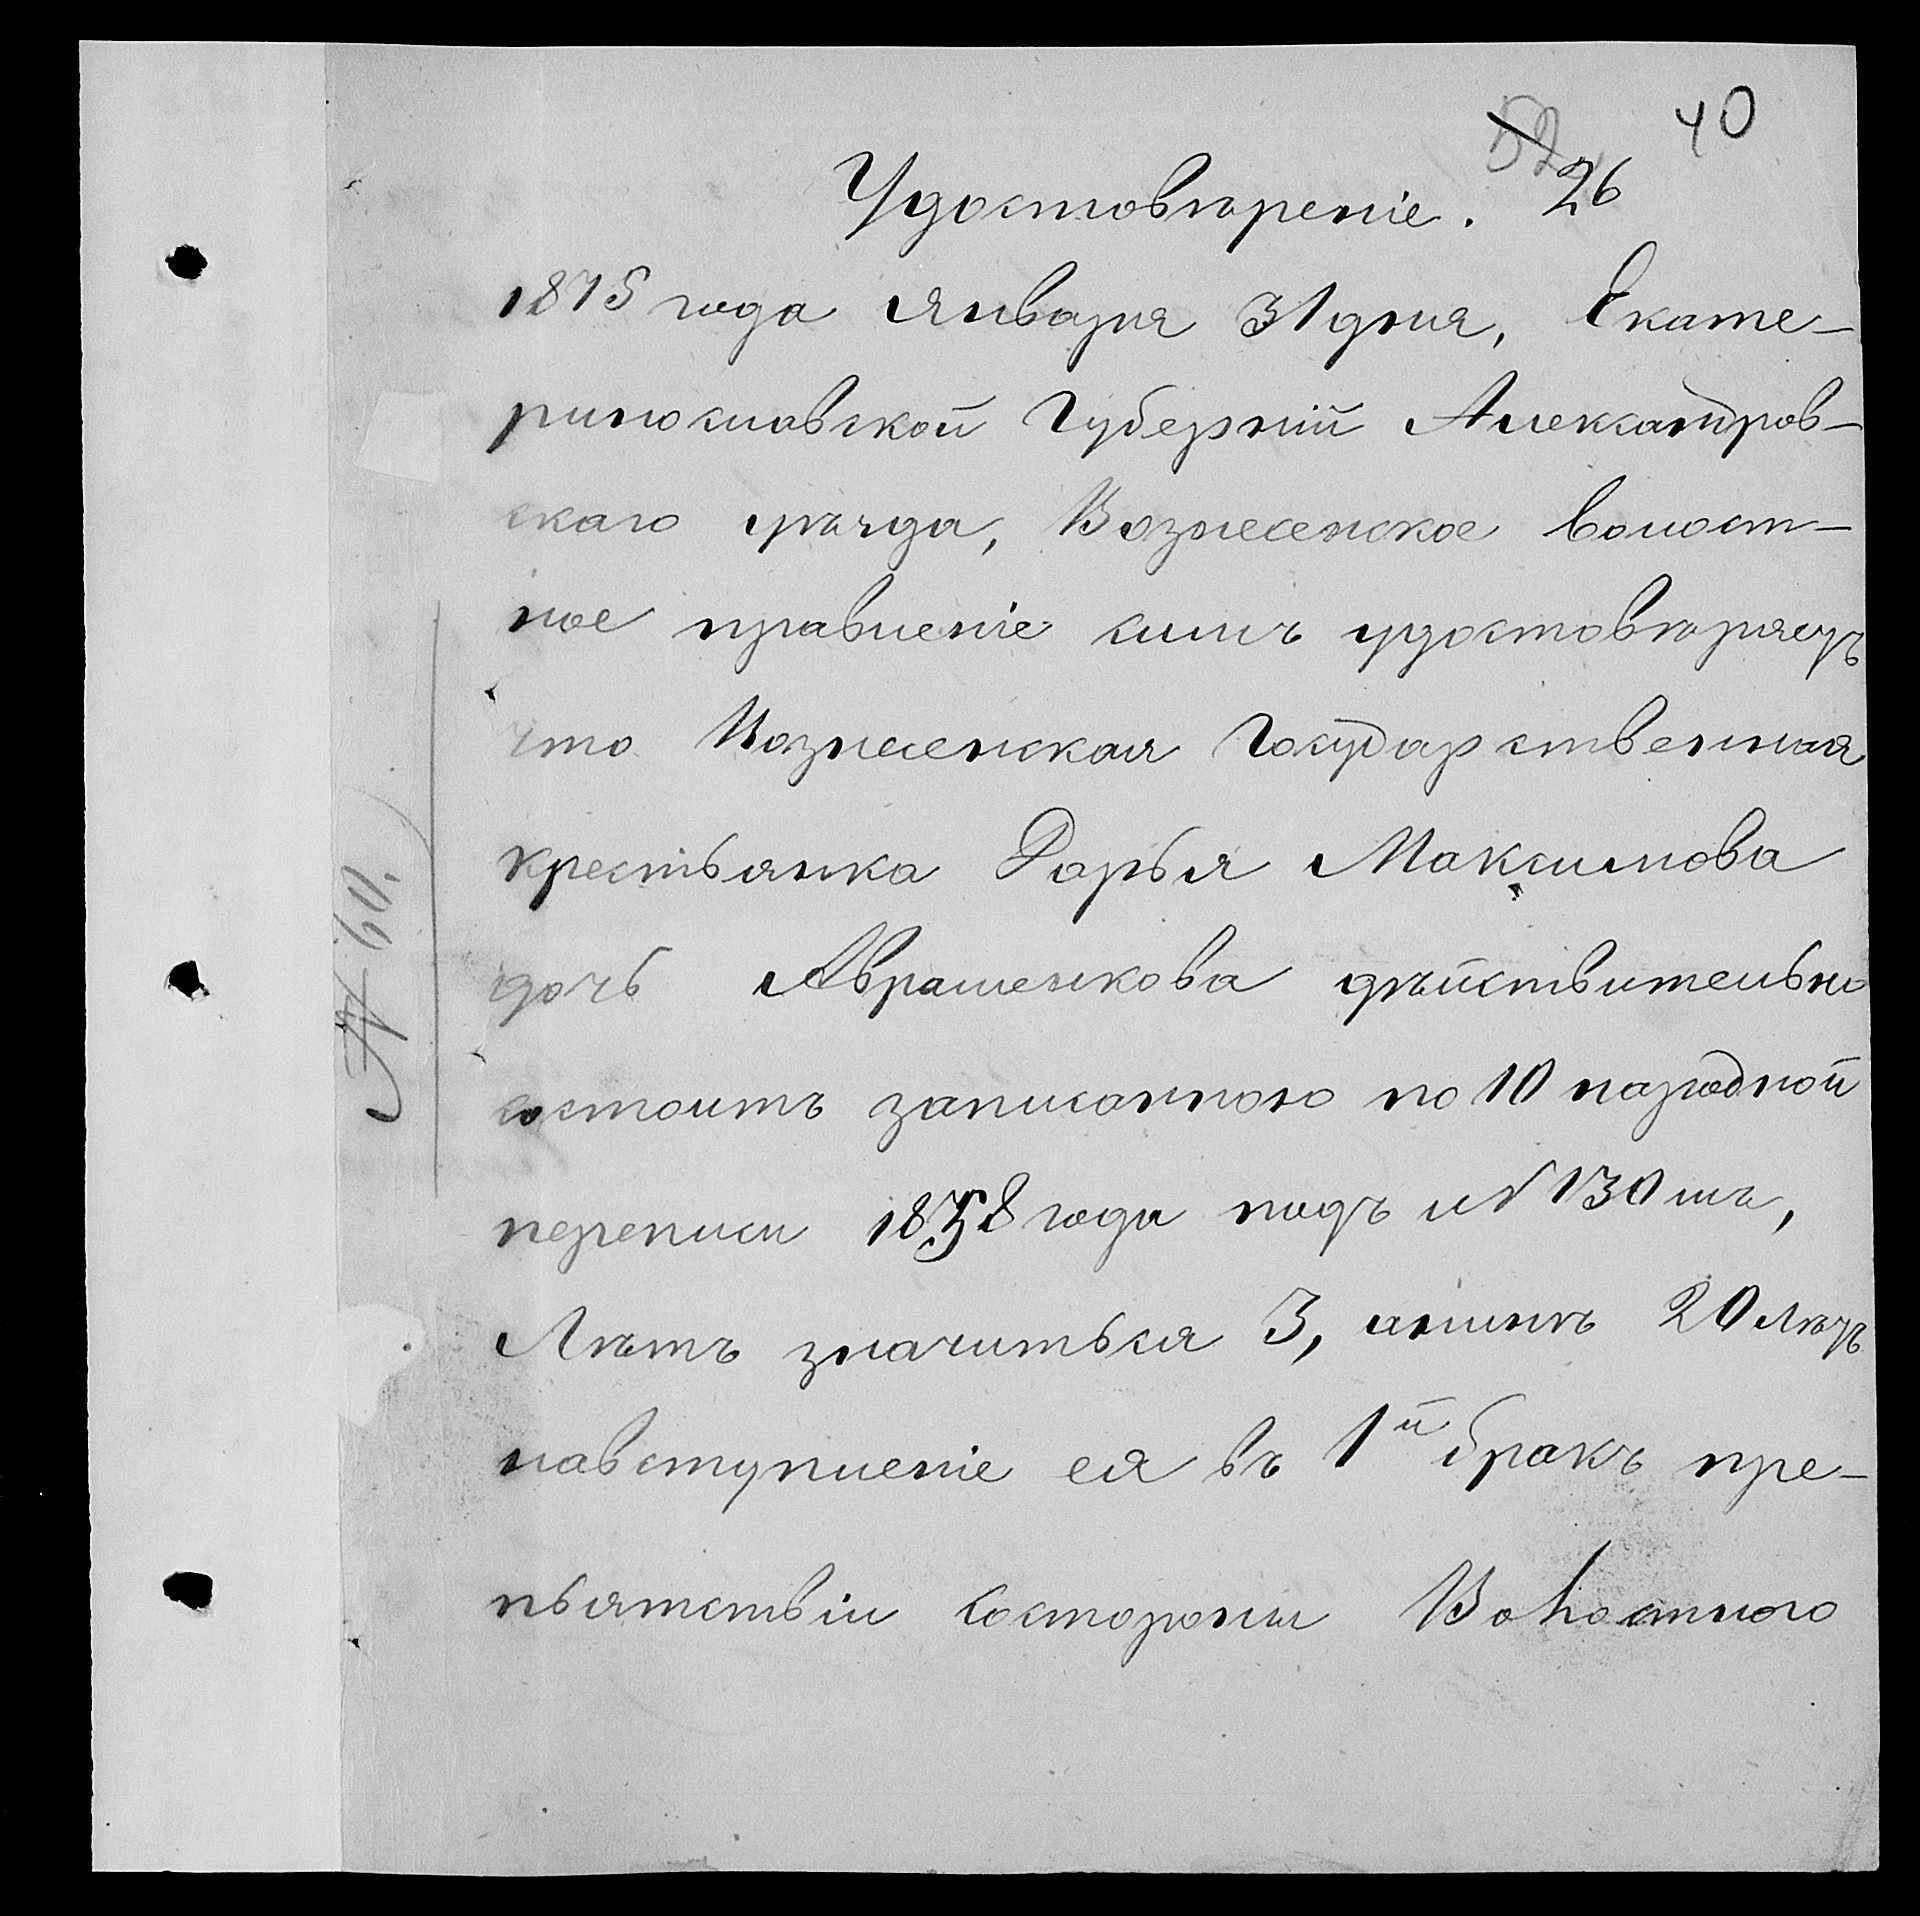 52 40
Удостовѣреніе. 26
1875 года Января 31 дня, Екате-
ринославской Губерній Александров-
скаго уѣзда, Вознесенское волост-
ное правленіе симъ удостовѣряетъ
что Вознесенская Государственная
крестьянка Дарья Максимова
дочь Аврашенкова дѣйствительно
состоитъ записанною по 10 народной
переписи 1858 года подъ № 130 мъ,
Лѣтъ значиться 3, анынѣ 20 лѣтъ
навступленіе ея въ 1й бракъ пре-
пьятствіи состороны Волостного
№ 60.